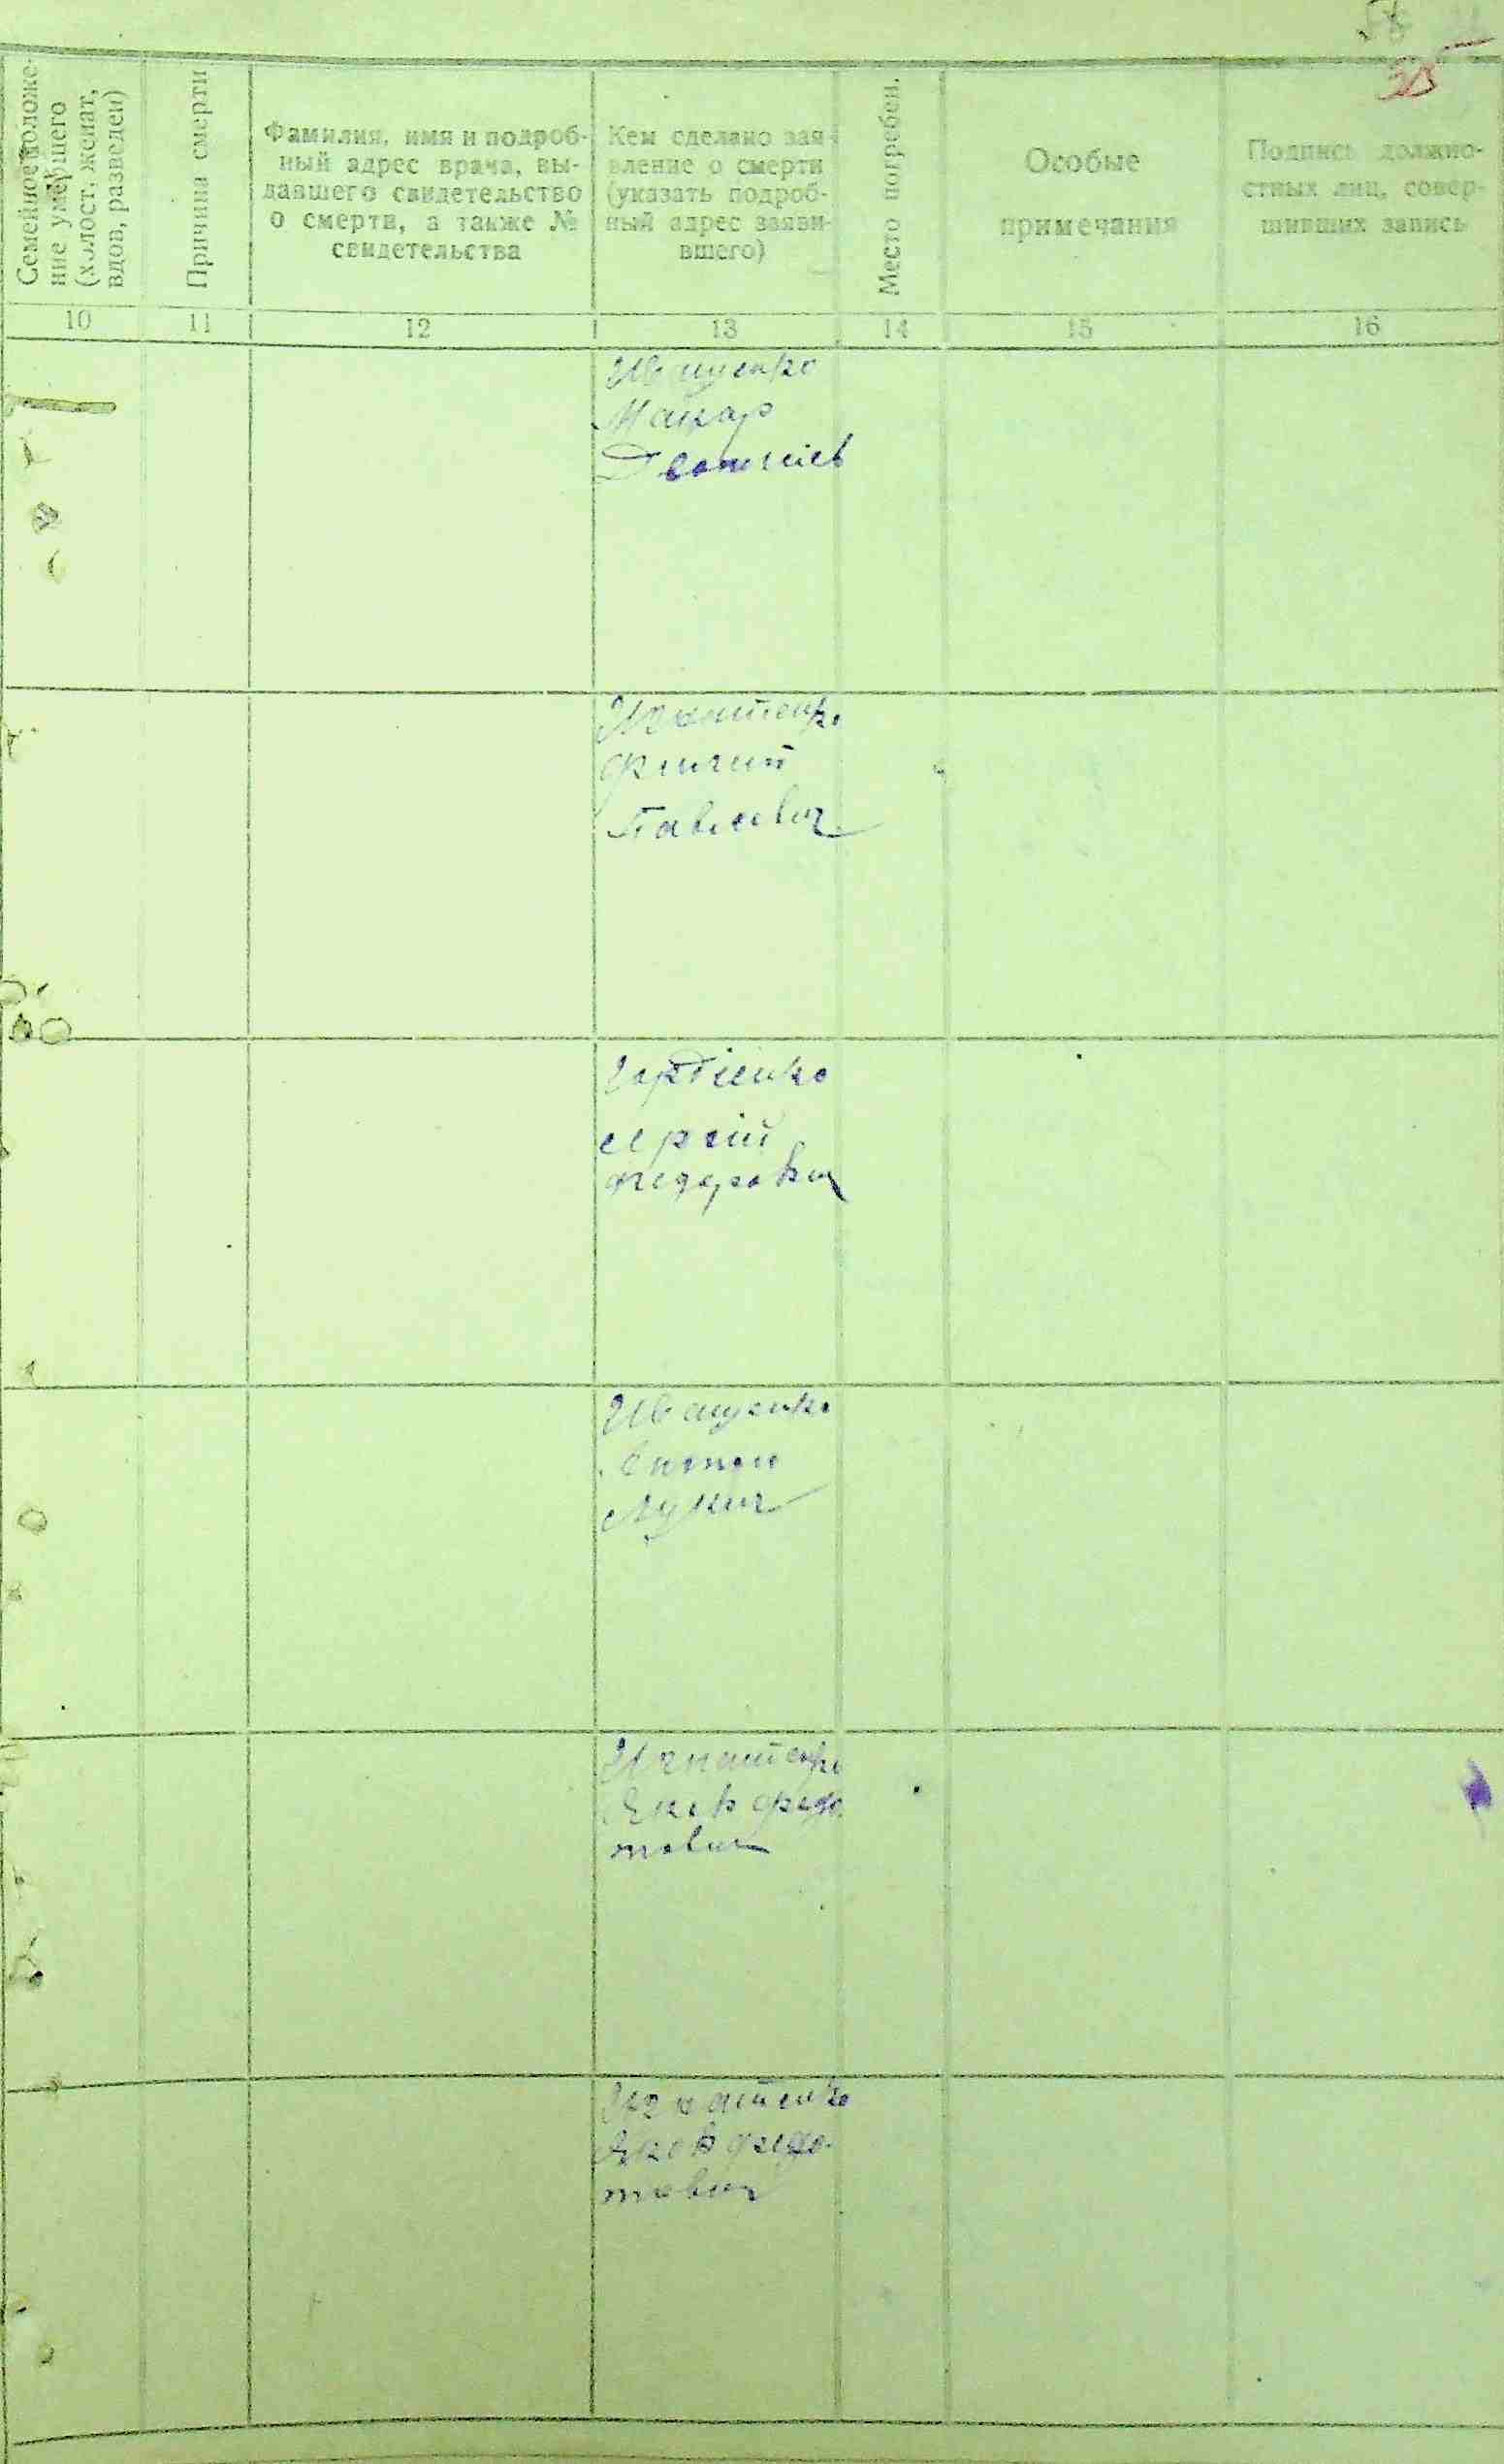 Семейное положе-
ние умершего
(холост, женат,
вдов, разведен)
Причина смерти
Фамилия, имя и подроб-
ный адрес врача, вы-
давшего свидетельство
о смерти, а также №
свидетельства
Кем сделано зая-
вление о смерти
(указать подроб-
ный адрес заяви-
вшего)
Место погребен.
Особые
примечания
Подпись должно-
стных лиц, совер-
шивших запись
10 11 12 13 14 15 16
Иващенко
Макар
Игнатенко
Павлович
Гордіенко
федорович
Иващенко
Антон
Лукич
Игнатенко
Яков Федо
тович
Игнатенко
Яков Федо-
тович